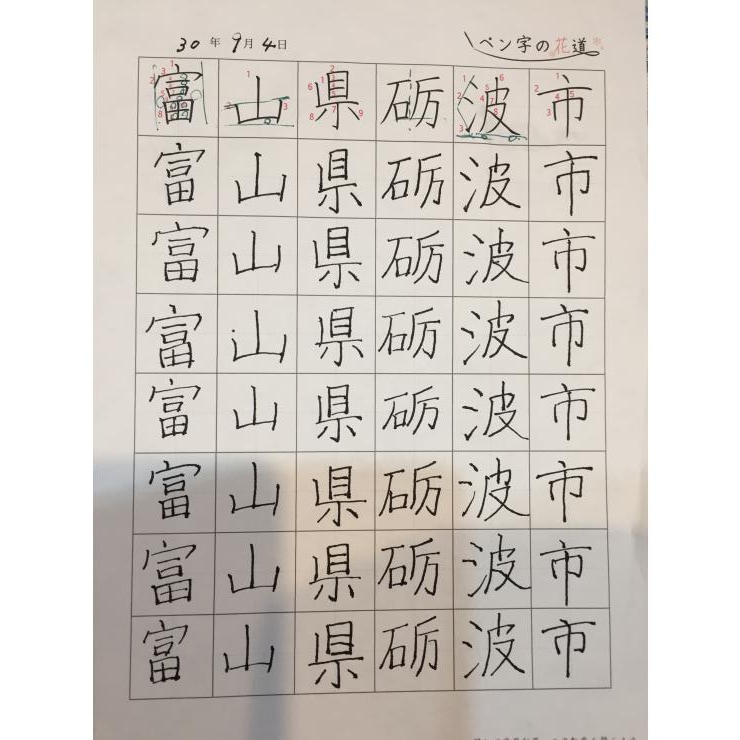 30年9月4日 ペン字の花道
富山県砺波市
富山県砺波市
富山県砺波市
富山県砺波市
富山県砺波市
富山県砺波市
富山県砺波市
富山県砺波市